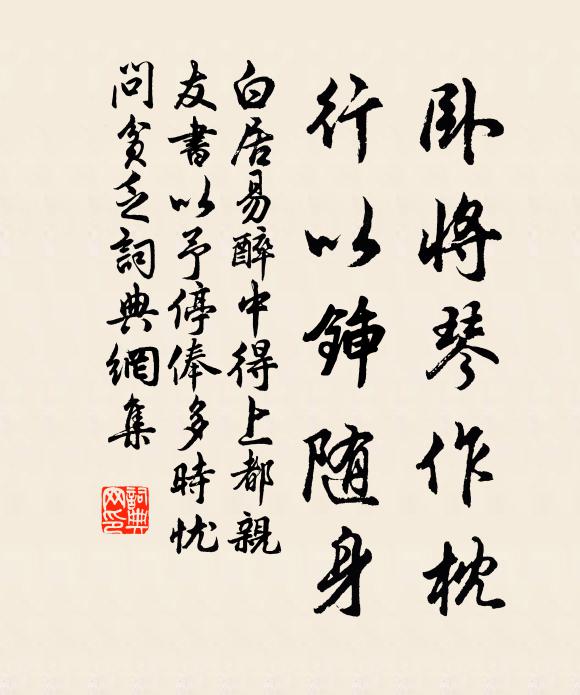 卧將琴作枕
行以鍤随身
白居易醉中得上都親
友書以予停俸多時忧
問貧乏詞典網集
詞典
网印